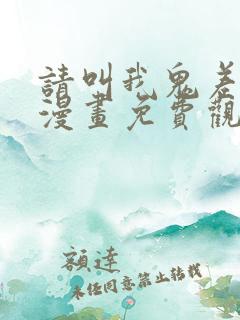 請叫我鬼差
漫畫免費觀
額達
未經同意禁止轉載